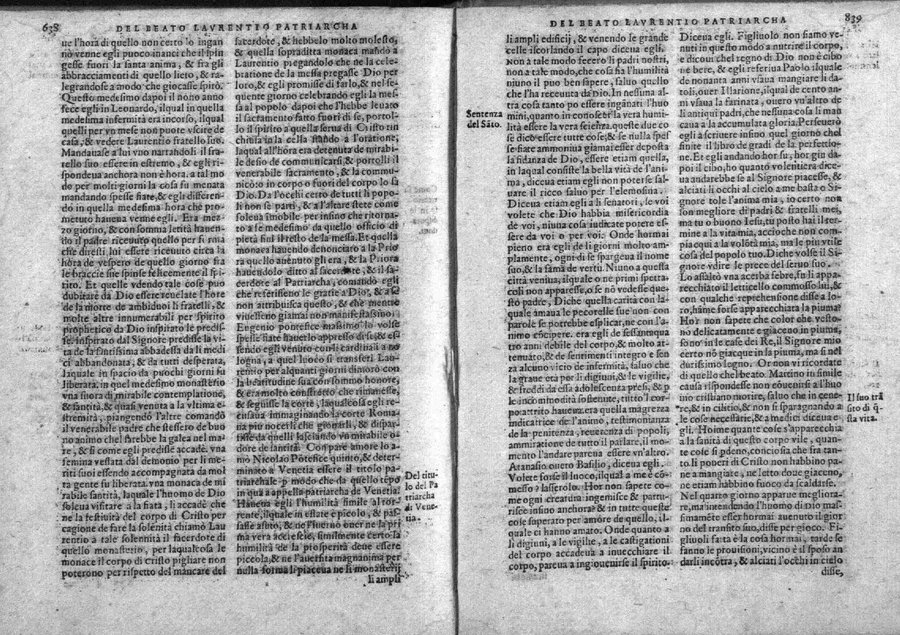 638 DEL BEATO LAVRENTIO PATRIARCHA
ue l'hora di quello non certo lo ingan
nò venne egli puoco inanci che il pia
gesse fuori la santa anima, & fra gli
abbracciamenti di quello lieto, & ra-
legrandose a modo che giocasse spirò.
Questo medesimo dapoi il nono anno
fece egli in Leonardo, ilqual in quella
medesima infermità era incorso, ilqual
quelli per vn mese non puote vscire di
casa, & vedere Laurentio fratello suo.
Mandauase a lui vno narrandoli il fra
tello suo essere in estremo, & egli ri-
spondeua anchora non è hora. a tal mo
do per molti giorni la cosa fu menata
mandando spesse fiate, & egli differen
do in quella medesima hora che pro-
metuto haueua venne egli. Era mez-
zo giorno, & con somma letitia hauen-
do il padre riceuuto quello per si ma
esse diresti lui essere riceuuto circa la
hora de vespero de quello giorno fra
le braccie sue spinse felicemente il spi-
rito. Et quelle vdendo tale cose può
dubitare da Dio essere reuelate l'hore
de la morte de ambiduoi li fratelli, &
molte altre innumerabili per spirito
prophetico da Dio inspirato le predis-
se. Inspirato dal Signore predisse la vi-
ta de la santissima abbadessa da li medi
ci abbandonata, & da tutti desperata,
laquale in spacio da puochi giorni fu
liberata. in quel medesimo monasterio
vna suora di mirabile contemplatione,
& santità, & quasi venuta a la vltima e-
stremità, piangendo l'altre comandò
il venerabile padre che stessero de buo
no animo chel farebbe la galea nel ma-
re, & si come egli predisse accadè. vna
femina vessata dal demonio per li me-
riti suoi essendo accompagnata da mol
ta gente fu liberata. vna monaca de mi
rabile santità, laquale l'huomo de Dio
soleua visitare a la fiata, li accadè che
ne la festiuità del corpo di Christo per
cagione de fare la solenità chiamò Lau
rentio a tale solennità il sacerdote di
quello monasterio, per laqualcosa le
monace il corpo di Christo pigliare non
poterono per rispetto del mancare del
sacerdote, & hebbelo molto molesto,
& quella sopraditta monaca mandò a
Laurentio pregandolo che ne la cele-
bratione de la messa pregasse Dio per
loro, & egli promisse di farlo, & nel se-
quente giorno celebrando egli la mes-
sa al popolo dapoi che l'hebbe leuato
il sacramento fatto fuori di se, portol-
lo il spirito a quella serua di Cristo rin
chiusa in la cella stando a l'oratione,
laqual all'hora era detenuta de mirabi-
le desio de communicarsi, & portolli il
venerabile sacramento, & la commu-
nicò non in corpo e fuori del corpo lo sa
Dio. Da l'occhi certo de tutti li popo-
li non se partì, & a l'altare stete come
soleua imobile per insino che ritorna-
to a se medesimo da quello officio di
pietà finì il resto de la messa. Et quella
monaca hauendo denonciato a la Prio
ra quello auenuto gli era, & la Priora
hauendolo ditto al sacerdote, & il sa-
cerdote al Patriarcha, comandò egli
che referisseno le gratie a Dio, & a se
non attribuisca questo, & che mentre
viuesseno giamai non manifestassino:
Eugenio pontefice massimo lo volse
spesse fiate hauerlo appresso di se, & es
sendo egli venuto con li cardinali a Bo
logna, a quel luoco si transferì Lau-
rentio per alquanti giorni dimorò con
la beatitudine sua con sommo honore,
& era molto constretto che rimanesse,
& seguisse la corte, laqualcosa egli re-
cusaua immaginando la corte Roma-
na piu nocerli che giouarli, & dispar-
tisse da quelli lasciando vn mirabile o-
dore de santità. Compare amore lo a-
mò Nicolao Potefice quinto, & deter-
minato a Venetia essere il titolo pa-
triarchale p modo che da quello tempo
in qua s'appella patriarcha de Venetia.
Haueua egli l'humilità simile al tor-
rente, ilquale in estate è picolo, & pas-
sasse asiuto, & ne l'inuerno ouer ne la pri
ma vera accresce, similmente certo la
humilità de la prosperità deue essere
piccola, & ne l'auersità magnanima per
nulla forma li piaceua ne li monasterij
li ampli
Del titu-
lo del Pa
triarcha
di Vene-
tia.
DEL BEATO LAVRENTIO PATRIARCHA 839
li ampli edificij, & venendo se grande
celle iscorlando il capo diceua egli.
Non a tale modo fecero li padri nostri,
non a tale modo, che cosa fia l'humilità
niuno il puo ben sapere, saluo quello
che l'ha receuuta da Dio. In nessuna al
tra cosa tanto po essere ingãnati l'huo
mini, quanto in conoscere la vera humi
lità essere la vera scienza, queste due co
se dice essere tutte cose, & se nulla spes-
se fiate ammoniua giamai esser deposta
la fidanza de Dio, essere etiam quella,
in laqual consiste la bella vita de l'ani-
ma, diceua etiam egli non poterse sal-
uare il ricco saluo per l'elemosina.
Diceua etiam egli a li senatori, se voi
volete che Dio habbia misericordia
de voi, niuna cosa indicate potere es-
sere da voi o per voi. Onde hormai
pieno era egli de li giorni molto am-
plamente, ogni dì se spargeua il nome
suo, & la fama de vertù. Niuno a questa
città veniua, ilquale o ne primi specta-
coli non apparesse, o se nò vedesse que-
sto padre, Diche quella carità con la-
quale amaua le pecorelle sue non con
parole se potrebbe esplicar, ne con l'a-
nimo cõcipere. era egli de sessantaqua
tro anni debile del corpo, & molto at-
tenuato, & de sentimenti integro e sen
za alcuno vicio de infermità, saluo che
la graue età per li digiuni, & le vigilie,
& freddi da essa adolescentia presi, & p
le incommodità sostenute, tutto l cor-
po attrito haueua. era quella magrezza
indicatrice de l'animo, testimonianza
de la penitenza, reuerenza di popoli,
ammiratione de tutto il parlare, il mo-
mento l'andare pareua essere vn'altro.
Atanasio ouero Basilio, diceua egli.
Volete forse il luoco, ilqual a me è com-
messo? lasserolo. Hor non sapete co-
me ogni creatura ingemisce & partu-
risce insino anchora? & in tutte queste
cose superato per amore de quello, il-
quale ci hanno amato. Onde quanto a
li digiuni, a le vigilie, a le castigationi
del corpo accadeua a inuecchiare il
corpo, pareua a ingiouenirse il spirito.
Sentenza
del Sãto.
Diceua egli. Figliuolo non siamo ve-
nuti in questo modo a nutrire il corpo,
e dicoui che'l regno di Dio non è cibo
ne bere, & egli referiua Paolo ilquale
de nonanta anni vsaua mangiare li da-
toli, ouer Illarione, ilqual de cento an-
ni vsaua la farinata, ouero vn'altro de
li antiqui padri, che nessuna cosa li man
caua a la accumulata gloria. Perseuerò
egli a scriuere insino quel giorno chel
finite il libro de gradi de la perfettio-
ne. Et egli andando hor su, hor giu da-
poi il cibo, ho quanto volentiera dice-
ua andarebbe se al Signore piacesse, &
alciati li occhi al cielo a me basta o Si-
gnore tole l'anima mia, io certo non
son megliore di padri & fratelli mei,
ma tu o buono Iesu, tu posto hai il ter-
mine a la vita mia, accioche non com-
piacqui a la volõtà mia, ma le piu vtile
cosa del popolo tuo. Diche volse il Si-
gnore vdire le prece del seruo suo.
Lo assaltò vna acerba febre, su li appa-
recchiato il letticello commosso lui, &
con qualche reprehensione disse a lo-
ro, hàme forse apparecchiata la piuma?
Hor non sapete che color che vesto-
no delicatamente e giaceno in piuma,
sono in le case dei Re, il Signore mio
certo nõ giacque in la piuma, ma sì nel
durissimo legno. Or non vi ricordate
di quello chel beato Martino in simile
causa rispondesse non conuenirsi a l'huo
mo cristiano morire, saluo che in cene-
re, & in cilicio, & non si sparagnando a
le cose necessarie, & a medici diceua e-
gli. Hoime quante cose s'apparecchia
a la sanità di questo corpo vile, quan-
te cose si pdeno, conciosia che fra tan-
to li poueri di Cristo non habbino pa-
ne a mangiare, ne letto doue giaceno,
ne etiam habbino fuoco da scaldarse.
Nel quarto giorno apparue megliora-
re, ma intendendo l'huomo di Dio mas-
simamẽte esser hormai auenuto il gior
no del transito suo, disse per gioco. Fi-
gliuoli fatta è la cosa hormai, tarde se
fanno le prouisioni, vicino è il sposo an
darli incõtra, & alciati l'occhi in cielo
disse,
Il suo trã
sito di q̃-
sta vita.